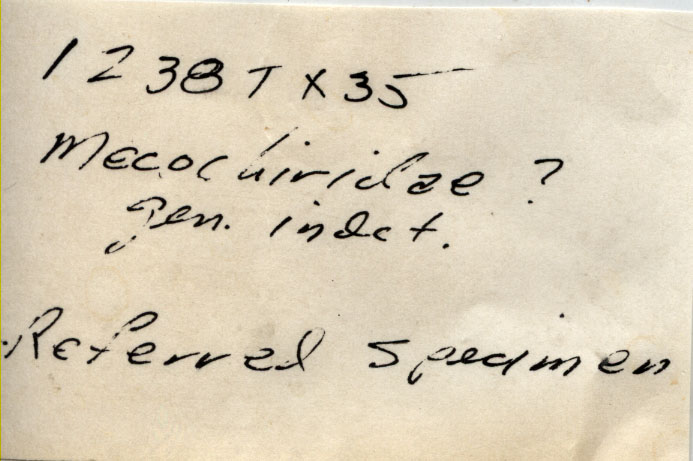 1238TX35
Mecochiridae ?
gen. indet.
Referred specimen